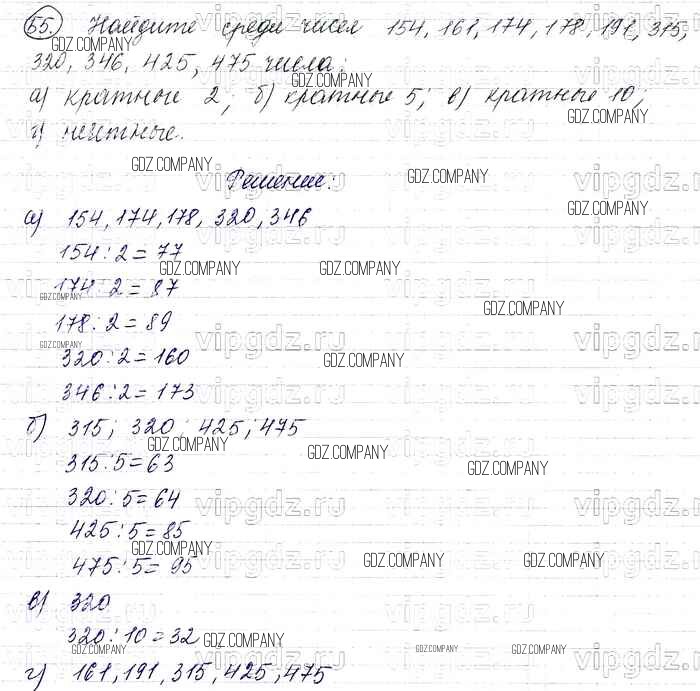 55. Найдите среди чисел 154, 161, 174, 178, 191, 315,
320, 346, 425, 475 числа:
а) кратные 2; б) кратные 5; в) кратные 10;
г) нечётные.
Решение:
а) 154, 174, 178, 320, 346
154:2=77
174:2=87
178:2=89
320:2=160
346:2=173
б) 315; 320; 425; 475
315:5=63
320:5=64
425:5=85
475:5=95
в) 320
320:10=32
г) 161, 191, 315, 425, 475